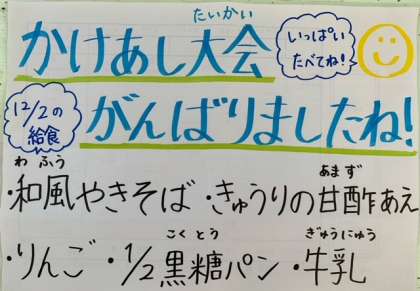 たいかい
かけあし大会
いっぱい
たべてね!
12/2の
給食
がんばりましたね!
わふう
あまず
・和風やきそば ・きゅうりの甘酢あえ
こくとう
ぎゅうにゅう
・りんご ・1/2黒糖パン ・牛乳